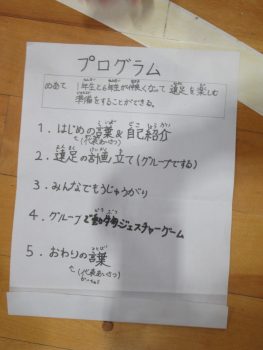 プログラム
めあて 1年生と6年生が仲良くなって 遠足を楽しむ
準備をすることができる。
1. はじめの言葉&自己紹介
(代表あいさつ)
2. 遠足の計画立て(グループでする)
3. みんなでもうじゅうがり
4. グループで動物ジェスチャーゲーム
5. おわりの言葉
(代表あいさつ)